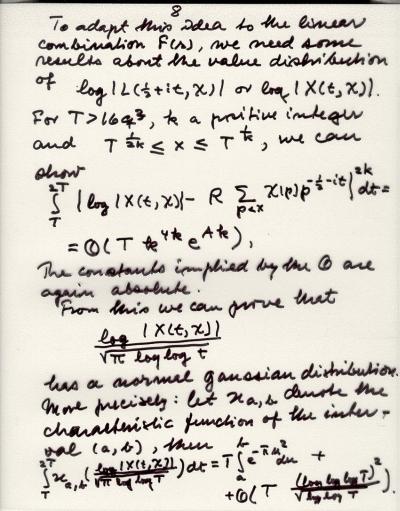 8
To adapt this idea to the linear
combination F(s), we need some
results about the value distribution
of log |L(½+it, χ)| or log |X(t, χ)|.
For T > 16q³, k a positive integer
and T^{1/2k} ≤ x ≤ T^{1/k}, we can
show
∫_T^{2T} | log |X(t, χ)| - R ∑_{p<x} χ(p) p^{-½-it} |^{2k} dt =
= O(T k^{4k} e^{Ak}),
The constants implied by the O are
again absolute.
From this we can prove that
log |X(t, χ)| / √π log log t
has a normal gaussian distribution.
More precisely: let χ_{a,b} denote the
characteristic function of the inter-
val (a, b), then
∫_T^{2T} χ_{a,b} ( log |X(t, χ)| / √π log log T ) dt = T ∫_a^b e^{-πu²} du +
+ O( T (log log log T)² / √log log T ).